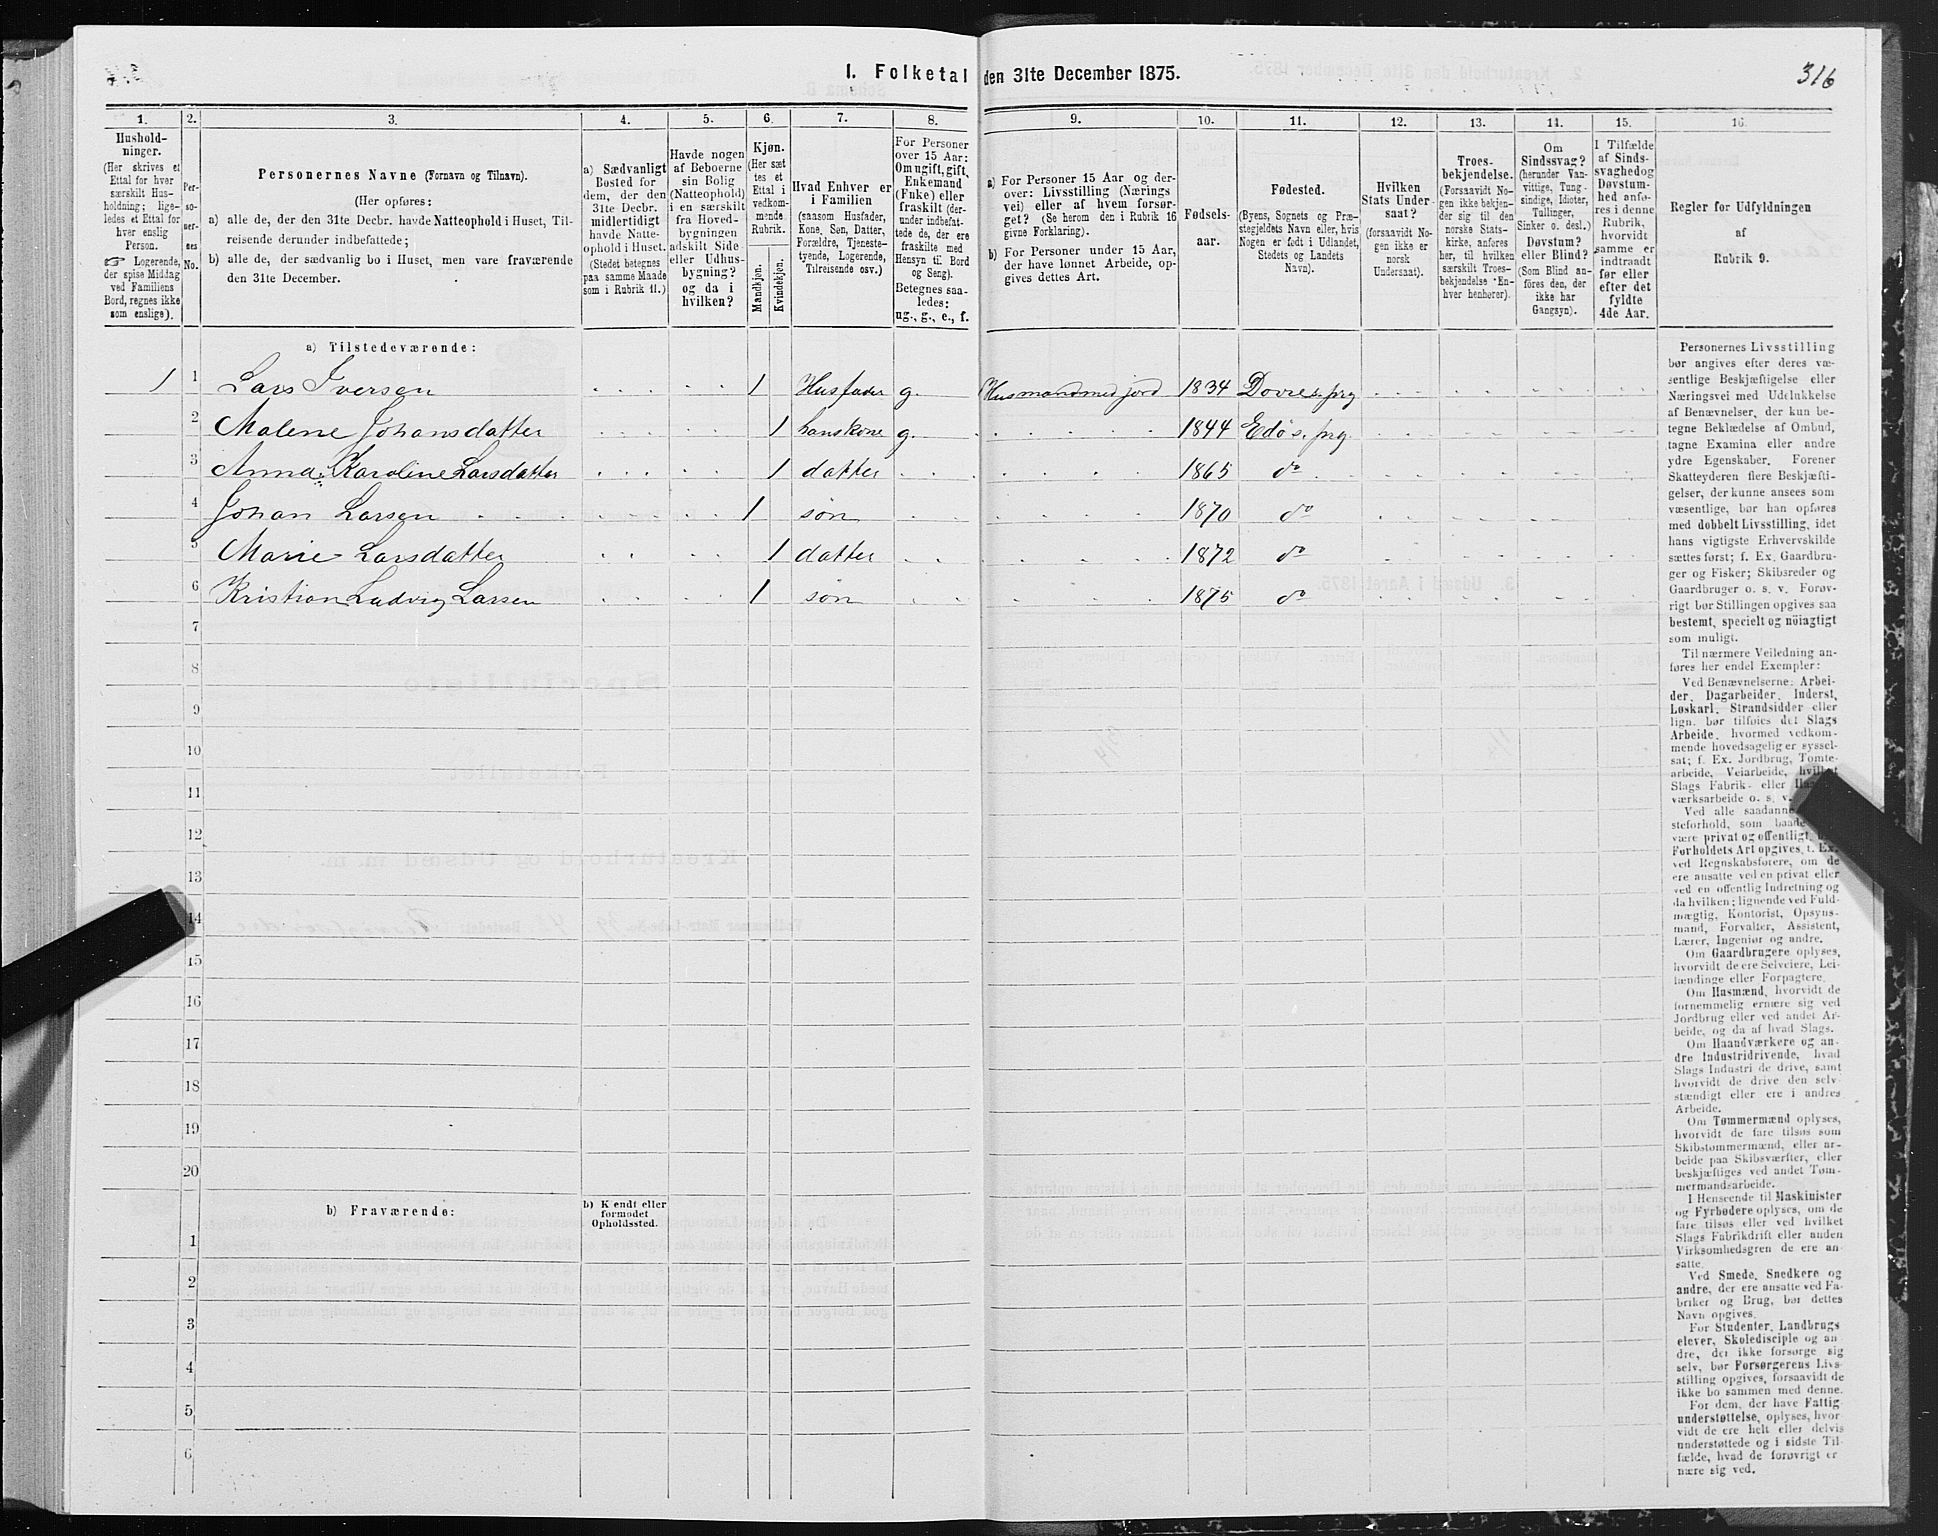 1. Folketal den 31te December 1875.
316
1.
2.
3.
4.
5.
6.
7.
8.
9.
10.
11.
12.
13.
14.
15.
16.
Hushold-
ninger.
(Her skrives et
Ettal for hver
særskilt Hus-
holdning; lige-
ledes et Ettal for
hver enslig
Person.
☞ Logerende,
der spise Middag
ved Familiens
Bord, regnes ikke
som enslige).
Per-
so-
ner-
nes
No.
Personernes Navne (Fornavn og Tilnavn).
(Her opføres:
a) alle de, der den 31te Decbr. havde Natteophold i Huset, Til-
reisende derunder indbefattede;
b) alle de, der sædvanlig bo i Huset, men vare fraværende
den 31te December.
a) Sædvanligt
Bosted for
dem, der den
31te Decbr.
midlertidigt
havde Natte-
ophold i Huset.
(Stedet betegnes
paa samme Maade
som i Rubrik 11.)
Havde nogen
af Beboerne
sin Bolig
(Natteophold)
i en særskilt
fra Hoved-
bygningen
adskilt Side-
eller Udhus-
bygning?
og da i
hvilken?
Kjøn.
(Her sæt
tes et
Ettal i
vedkom-
mende
Rubrik.
Mandkjøn.
Kvindekjøn.
Hvad Enhver er
i Familien
(saasom Husfader,
Kone, Søn, Datter,
Forældre, Tjeneste-
tyende, Logerende,
Tilreisende osv.)
For Personer
over 15 Aar:
Om ugift, gift,
Enkemand
(Enke) eller
fraskilt (der-
under indbefat-
tede de, der ere
fraskilte med
Hensyn til Bord
og Seng).
Betegnes saa-
ledes:
ug., g., e., f.
a) For Personer 15 Aar og der-
over: Livsstilling (Nærings
vei) eller af hvem forsør-
get? (Se herom den i Rubrik 16
givne Forklaring).
b) For Personer under 15 Aar,
der have lønnet Arbeide, op-
gives dettes Art.
Fødsels-
aar.
Fødested.
(Byens, Sognets og Præ-
stegjeldets Navn eller, hvis
Nogen er født i Udlandet,
Stedets og Landets
Navn).
Hvilken
Stats Under-
saat?
(forsaavidt No-
gen ikke er
norsk
Undersaat).
Troes-
bekjendelse.
(Forsaavidt No-
gen ikke bekjen-
der sig til den
norske Stats-
kirke, anføres
her, til hvilken
særskilt Troes-
bekjendelse En-
hver henhører).
Om
Sindssvag?
(herunder Van-
vittige, Tung-
sindige, Idioter,
Tullinger,
Sinker o. desl.)
Døvstum?
eller Blind?
(Som Blind an-
føres den, der
ikke har
Gangsyn).
I Tilfælde
af Sinds-
svaghed og
Døvstum-
hed anfø-
res i denne
Rubrik,
hvorvidt
samme er
indtraadt
før eller
efter det
fyldte
4de Aar.
Regler for Udfyldningen
af
Rubrik 9.
a) Tilstedeværende:
1 1 Lars Iversen 1 Husfader g. Husmand med jord 1834 Dovre s. prg
2 Malene Johansdatter 1 hans kone g. 1844 Edø s. prg.
3 Anna Karoline Larsdatter 1 datter 1865 do
4 Johan Larsen 1 søn 1870 do
5 Marie Larsdatter 1 datter 1872 do
6 Kristian Ludvig Larsen 1 søn 1875 do
7
8
9
10
11
12
13
14
15
16
17
18
19
20
b) Fraværende:
b) Kjendt eller
formodet
Opholdssted.
1
2
3
4
5
6
Personernes Livsstilling
bør angives efter deres væ-
sentlige Beskjæftigelse eller
Næringsvei med Udelukkelse
af Benævnelser, der kun be-
tegne Beklædelse af Ombud,
tagne Examina eller andre
ydre Egenskaber. Forener
Skatteyderen flere Beskjæfti-
gelser, der kunne ansees som
væsentlige, bør han opføres
med dobbelt Livsstilling, idet
hans vigtigste Erhvervskilde
sættes først; f. Ex. Gaardbru-
ger og Fisker; Skibsreder og
Gaardbruger o. s. v. Forøv-
rigt bør Stillingen opgives saa
bestemt, specielt og nöiagtigt
som muligt.
Til nærmere Veiledning an-
føres her endel Exempler:
Ved Benævnelserne: Arbei-
der, Dagarbeider, Inderst,
Løskarl, Strandsidder eller
lign. bør tilføies det Slags
Arbeide, hvormed vedkom-
mende hovedsagelig er syssel-
sat; f. Ex. Jordbrug, Tomte-
arbeide, Veiarbeide, hvilket
Slags Fabrik- eller
værksarbeide o. s. v.
Ved alle saadanne
steforhold, som baade
være privat og offentligt,
Forholdets Art opgives, f. Ex.
ved Regnskabsførere, om de
ere ansatte ved en privat eller
ved en offentlig Indretning og
da hvilken; lignende ved Fuld-
mægtig, Kontorist, Opsyns-
mand, Forvalter, Assistent,
Lærer, Ingeniør og andre.
Om Gaardbrugere oplyses,
hvorvidt de ere Selveiere, Lei-
lændinge eller Forpagtere.
Om Husmænd, hvorvidt de
fornemmelig ernære sig ved
Jordbrug eller ved andet Ar-
beide, og da af hvad Slags.
Om Haandværkere og an-
dre Industridrivende, hvad
Slags Industri de drive, samt
hvorvidt de drive den selv-
stændigt eller ere i andres
Arbeide.
Om Tømmermænd oplyses,
hvorvidt de fare tilsøs som
Skibstømmermænd, eller ar-
beide paa Skibsværfter, eller
beskjæftiges ved andet Tøm-
mermandsarbeide.
I Henseende til Maskinister
og Fyrbødere oplyses, om de
fare tilsøs eller ved hvilket
Slags Fabrikdrift eller anden
Virksomhedsgren de ere an-
satte.
Ved Smede, Snedkere og
andre, der ere ansatte ved Fa-
briker og Brug, bør dettes
Navn opgives.
For Studenter, Landbrugs
elever, Skoledisciple og an-
dre, der ikke forsørge sig
selv, bør Forsørgerens Livs-
stilling opgives, forsaavidt de
ikke bo sammen med denne.
For dem, der have Fattig-
understøttelse, oplyses, hvor-
vidt de ere helt eller delvis
understøttede og i sidste Til-
fælde, hvad de forøvrigt er
nære sig ved.